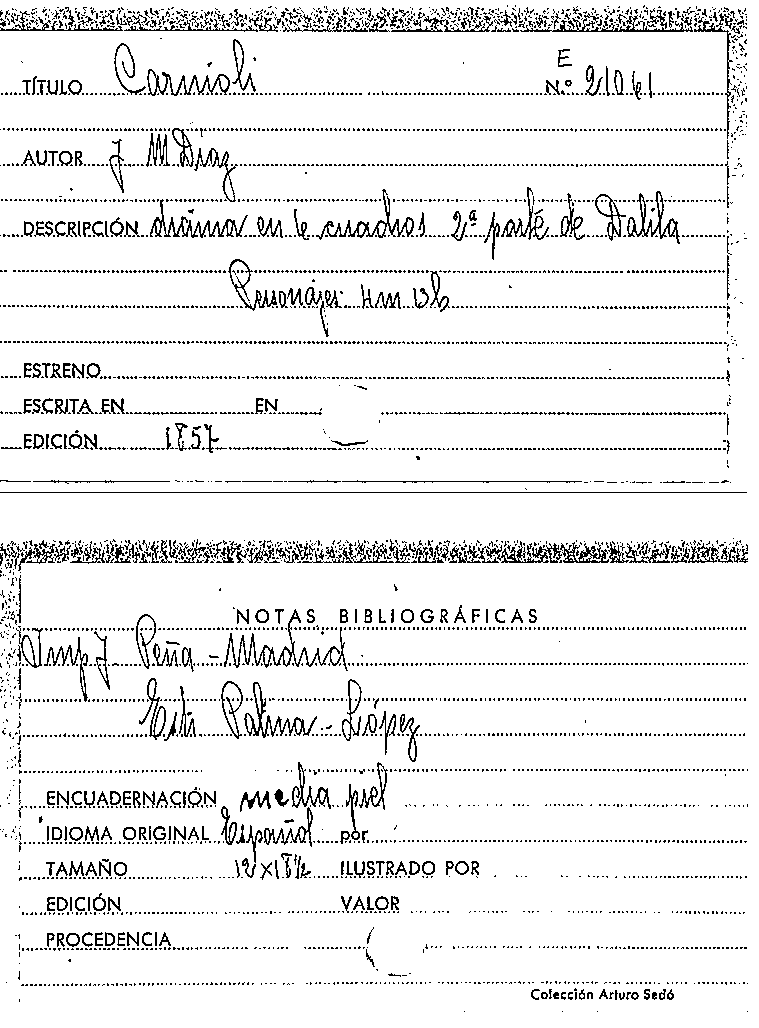 E
TÍTULO Carnioli N.º 21061
AUTOR J M Díaz
DESCRIPCIÓN drama en 6 cuadros 2ª parte de Dalila
Personajes 4m 13h
ESTRENO
ESCRITA EN EN
EDICIÓN 1857
NOTAS BIBLIOGRÁFICAS
Imp J. Peña - Madrid
Palma - López
ENCUADERNACIÓN media piel
IDIOMA ORIGINAL Español por
TAMAÑO 12 x 18½ ILUSTRADO POR
EDICIÓN VALOR
PROCEDENCIA
Colección Arturo Sedó